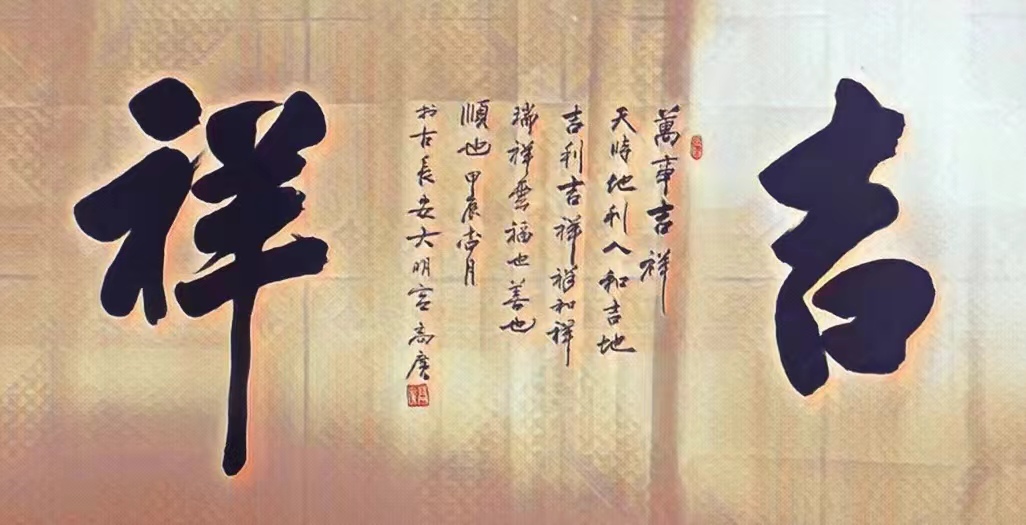 吉祥
萬事吉祥
天時地利人和吉地
吉利吉祥祥和祥
瑞祥雲福也善也
順也甲辰杏月
於古長安大明宮高廣